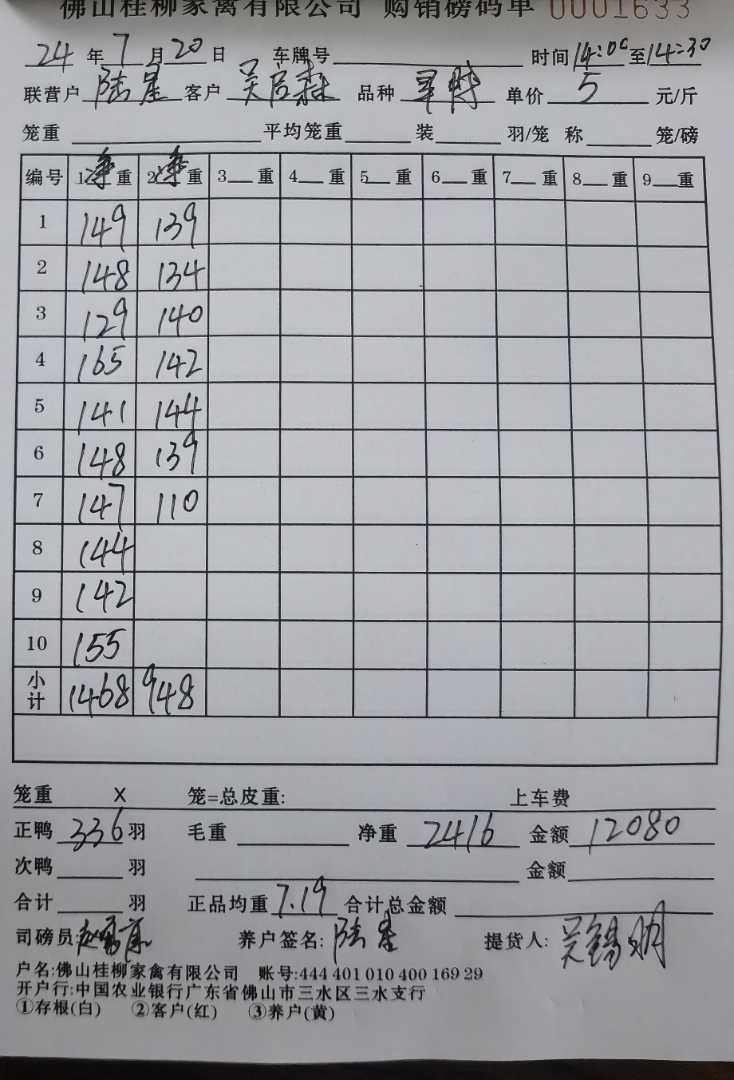 佛山桂柳家禽有限公司 购销磅码单 0001633
24 年 7 月 20 日 车牌号 时间 14:00 至 14:30
联营户 陆星 客户 品种 单价 5 元/斤
笼重 平均笼重 装 羽/笼 称 笼/磅
编号 1净重 2净重 3 重 4 重 5 重 6 重 7 重 8 重 9 重
1 149 139
2 148 134
3 129 140
4 165 142
5 141 144
6 148 139
7 147 110
8 144
9 142
10 155
小计 1468 948
笼重 X 笼=总皮重: 上车费
正鸭 336 羽 毛重 净重 2416 金额 12080
次鸭 羽 金额
合计 羽 正品均重 7.19 合计总金额
司磅员: 养户签名: 陆星 提货人: 吴锡明
户名:佛山桂柳家禽有限公司 账号:444 401 010 400 169 29
开户行:中国农业银行广东省佛山市三水区三水支行
①存根(白) ②客户(红) ③养户(黄)